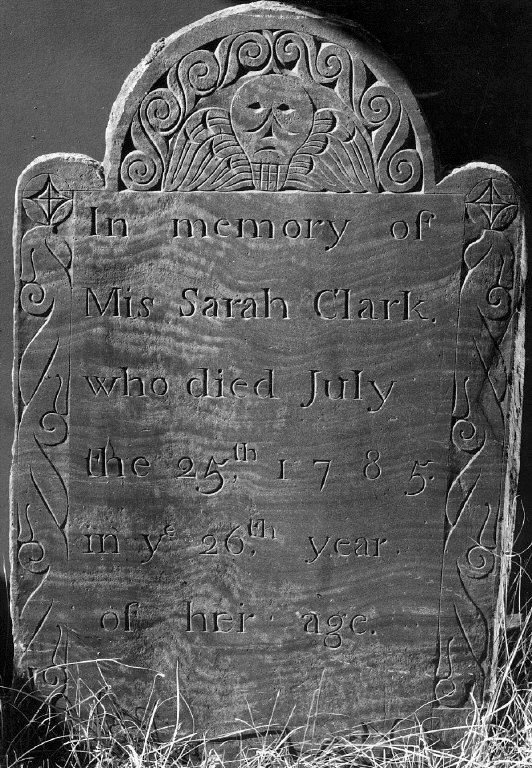 In memory of
Mis Sarah Clark.
who died July
the 25,th 1785.
in ye 26.th year.
of her age.